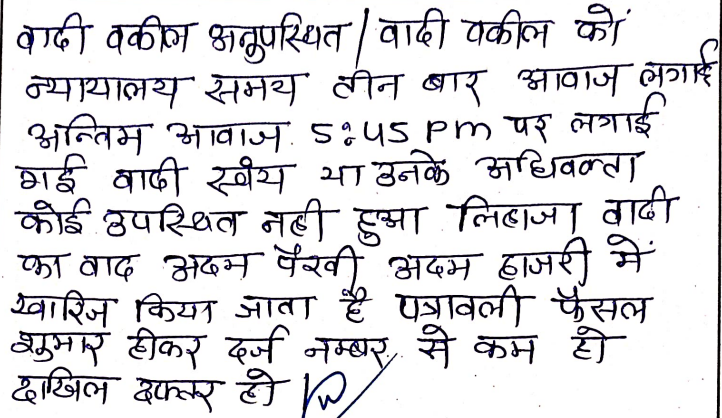 वादी वकील अनुपस्थित / वादी वकील को
न्यायालय समय तीन बार आवाज लगाई
अन्तिम आवाज 5:45 pm पर लगाई
गई वादी स्वंय या उनके अधिवक्ता
कोई उपस्थित नही हुआ लिहाजा वादी
का वाद अदम पैरवी अदम हाजरी में
खारिज किया जाता है पत्रावली फैसल
शुमार होकर दर्ज नम्बर से कम हो
दाखिल दफ्तर हो